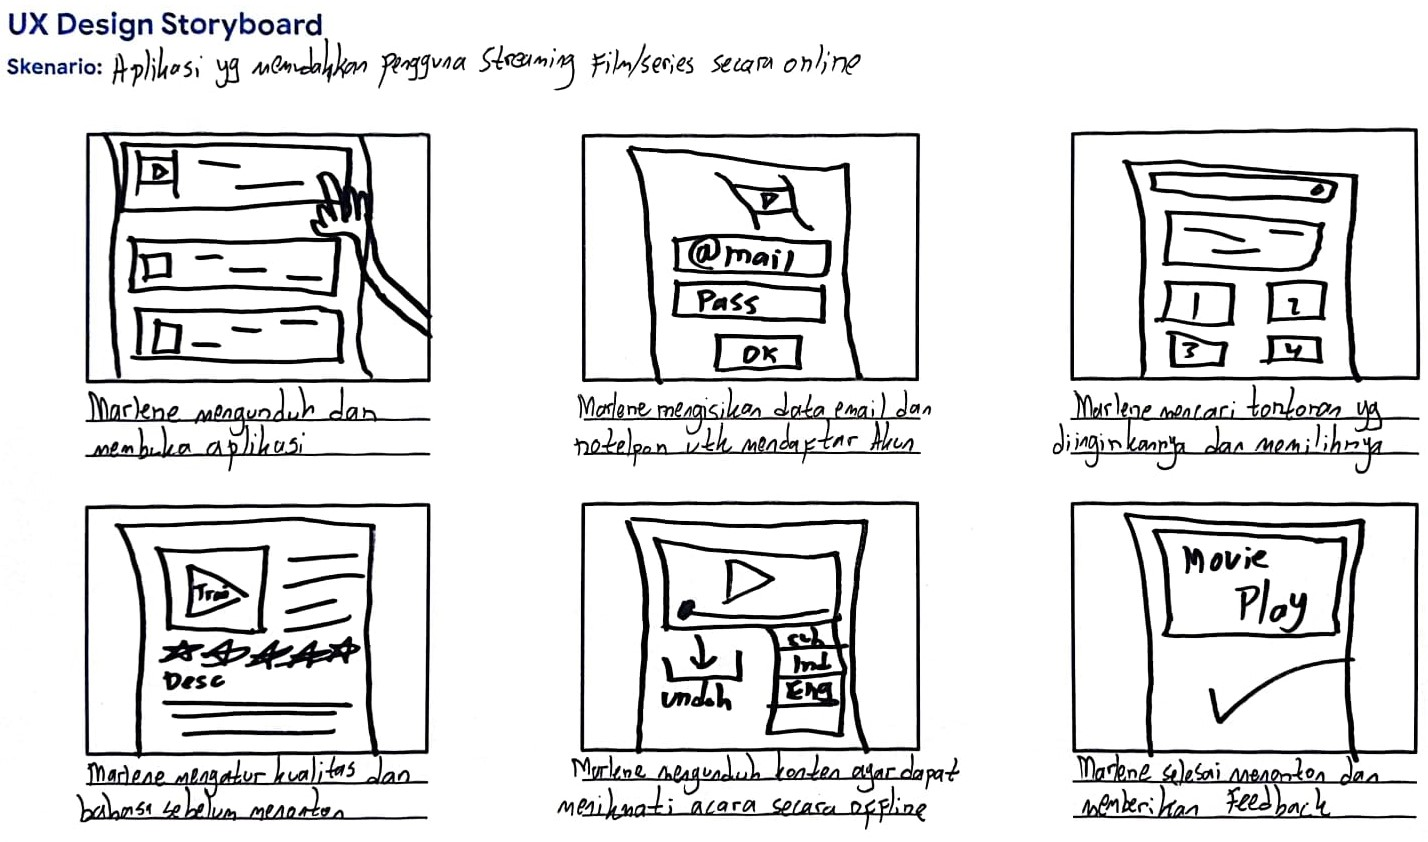 UX Design Storyboard
Skenario: Aplikasi yg memudahkan pengguna Streaming Film/series secara online
@mail
Pass
OK
1 2
3 4
Marlene mengunduh dan
membuka aplikasi
Marlene mengisikan data email dan
notelpon utk mendaftar Akun
Marlene mencari tontonan yg
diinginkannya dan memilihnya
Trai
Desc
sub
Ind
Eng
unduh
Movie
Play
Marlene mengatur kualitas dan
bahasa sebelum menonton
Marlene mengunduh konten agar dapat
menikmati acara secara offline
Marlene selesai menonton dan
memberikan Feedback